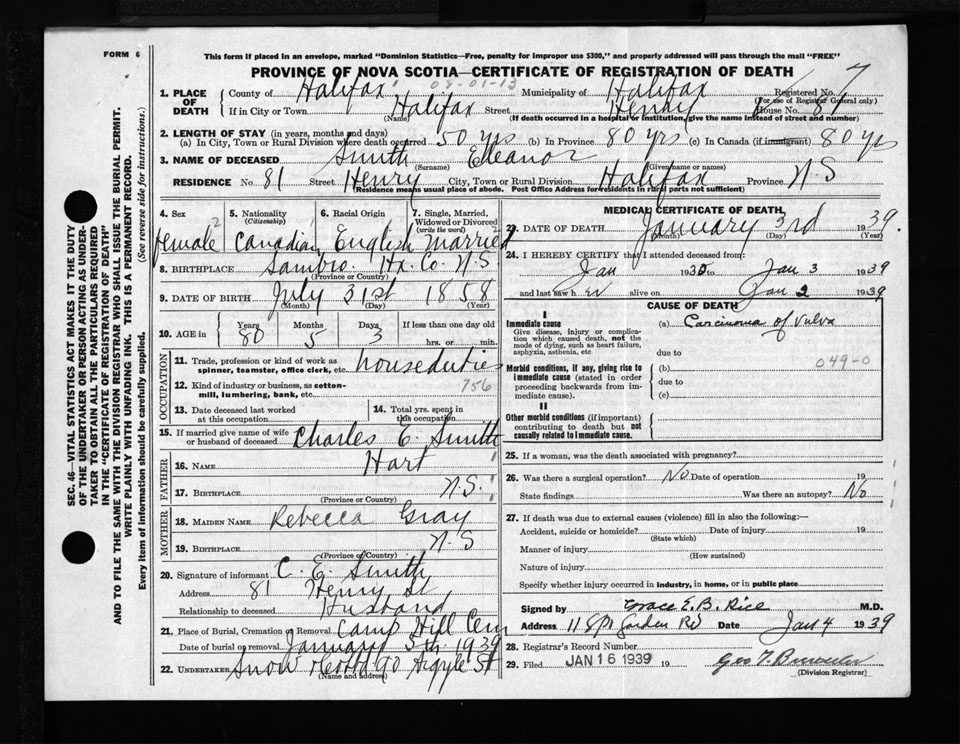 FORM 6
This form if placed in an envelope, marked "Dominion Statistics—Free, penalty for improper use $300," and properly addressed will pass through the mail "FREE"
PROVINCE OF NOVA SCOTIA—CERTIFICATE OF REGISTRATION OF DEATH
7
09-01-13
1. PLACE OF DEATH County of Halifax Municipality of Halifax Registered No.
(For use of Registrar General only)
If in City or Town Halifax Street Henry House No. 81
(Name) (If death occurred in a hospital or institution, give the name instead of street and number)
2. LENGTH OF STAY (in years, months and days)
(a) In City, Town or Rural Division where death occurred 50 yrs (b) In Province 80 yrs (c) In Canada (if immigrant) 80 yrs
3. NAME OF DECEASED Smith Eleanor
(Surname) (Given name or names)
RESIDENCE No. 81 Street Henry City, Town or Rural Division Halifax Province N S
(Residence means usual place of abode. Post Office Address for residents in rural parts not sufficient)
4. Sex female 2
5. Nationality (Citizenship) Canadian
6. Racial Origin English
7. Single, Married, Widowed or Divorced (write the word) Married 2
8. BIRTHPLACE Sambro. Hx. Co. N.S.
(Province or Country)
9. DATE OF BIRTH July 31st 1858
(Month) (Day) (Year)
10. AGE in Years 80 Months 5 Days 3 If less than one day
hrs. or min.
OCCUPATION
11. Trade, profession or kind of work as spinner, teamster, office clerk, etc. houseduties
12. Kind of industry or business, as cotton-mill, lumbering, bank, etc. 756
13. Date deceased last worked at this occupation
14. Total yrs. spent in this occupation
15. If married give name of wife or husband of deceased Charles E. Smith
FATHER
16. NAME Hart
17. BIRTHPLACE N.S.
(Province or Country)
MOTHER
18. MAIDEN NAME Rebecca Gray
19. BIRTHPLACE N.S
(Province or Country)
20. Signature of informant C. E. Smith
Address 81 Henry St
Relationship to deceased Husband
21. Place of Burial, Cremation or Removal Camp Hill Cem
Date of burial or removal January 5th 1939
22. UNDERTAKER Snow 90 Argyle St
(Name and address)
MEDICAL CERTIFICATE OF DEATH
23. DATE OF DEATH January 3rd 1939.
(Month) (Day) (Year)
24. I HEREBY CERTIFY that I attended deceased from:
Jan to Jan 3 1939
and last saw h er alive on Jan 2 1939
CAUSE OF DEATH
I
Immediate cause
Give disease, injury or complication which caused death, not the mode of dying, such as heart failure, asphyxia, asthenia, etc
(a) Carcinoma of Vulva
due to
Morbid conditions, if any, giving rise to immediate cause (stated in order proceeding backwards from immediate cause).
(b) 049-0
due to
(c)
II
Other morbid conditions (if important) contributing to death but not causally related to immediate cause.
25. If a woman, was the death associated with pregnancy?
26. Was there a surgical operation? No Date of operation 19
State findings Was there an autopsy? No
27. If death was due to external causes (violence) fill in also the following:—
Accident, suicide or homicide? Date of injury 19
(State which)
Manner of injury
(How sustained)
Nature of injury
Specify whether injury occurred in industry, in home, or in public place
Signed by Grace E. B. Rice M.D.
Address 118 Spr Garden Rd Date Jan 4 1939
28. Registrar's Record Number
29. Filed JAN 16 1939 19
(Division Registrar)
SEC. 46—VITAL STATISTICS ACT MAKES IT THE DUTY
OF THE UNDERTAKER OR PERSON ACTING AS UNDER-
TAKER TO OBTAIN ALL THE PARTICULARS REQUIRED
IN THE "CERTIFICATE OF REGISTRATION OF DEATH"
AND TO FILE THE SAME WITH THE DIVISION REGISTRAR WHO SHALL ISSUE THE BURIAL PERMIT.
WRITE PLAINLY WITH UNFADING INK. THIS IS A PERMANENT RECORD.
Every item of information should be carefully supplied. (See reverse side for instructions.)